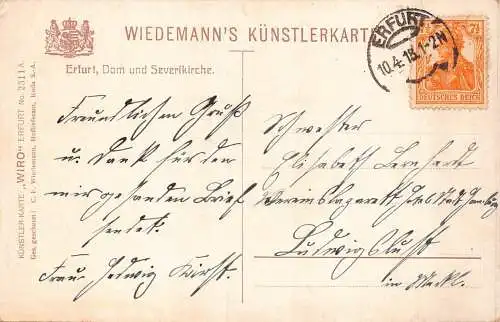 WIEDEMANN'S KÜNSTLERKARTE
Erfurt, Dom und Severikirche.
ERFURT
10.4.18.1-2N
7½
DEUTSCHES REICH
KÜNSTLER-KARTE „WIRO" ERFURT No. 2311 A
Ges. geschützt! C. F. Wiedemann, Hoflieferant, Roda S.-A.
Freundlichen Gruß
u. Dank für den
mir gesanden Brief
sendet.
Frau Hedwig Kirst.
Schwester
Elisabeth Lernhardt
Vereinslazarett Hotel Stadt Hamburg
Ludwigslust
in Meckl.